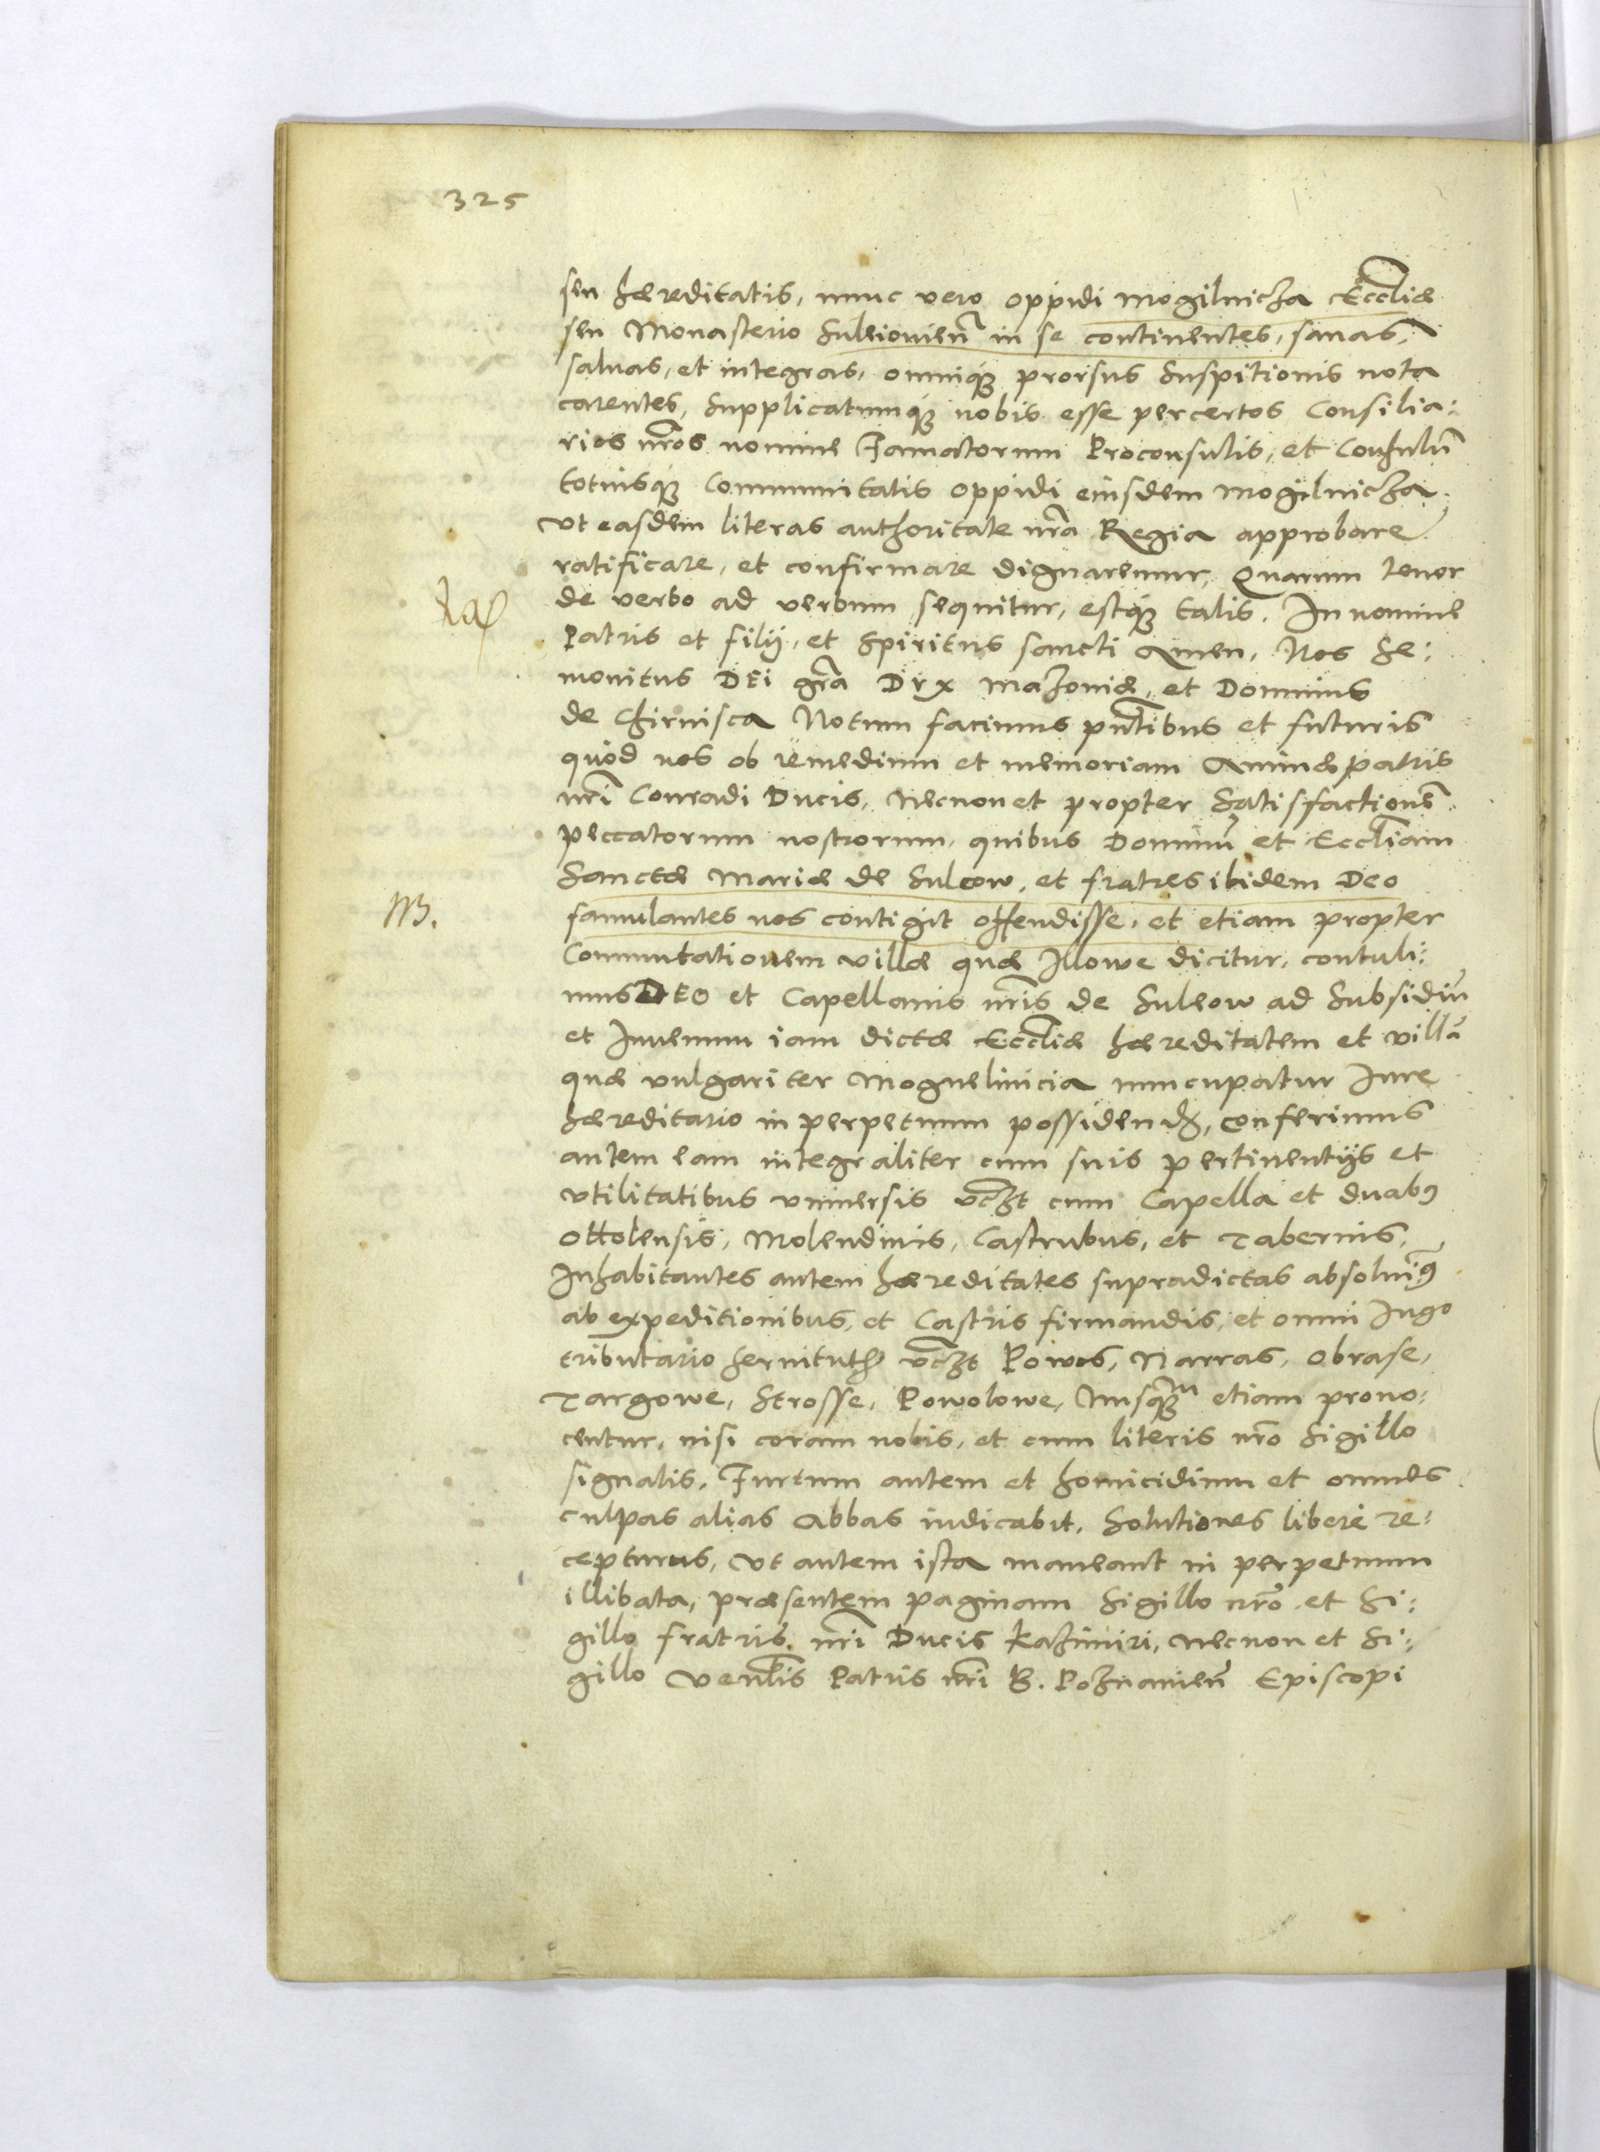 325
seu hæreditatis, nunc vero oppidi Mogilnicza Eccliæ
seu Monasterio Suleiouien̄ in se continentes, sanas,
saluas, et integras, omniq́ prorsus Suspitionis nota
carentes, Supplicatumq́ nobis esse percertos Consilia:
rios nr̄os nomine Famatorum Proconsulis, et Consulū
totiusq́ Communitatis oppidi eiusdem Mogilnicza
vt easdem literas authoritate nr̄a Regia approbare
ratificare, et confirmare dignaremur, Quarum tenor
de verbo ad verbum sequitur, estq́ talis. In nomine
Patris et filij, et Spiritus sancti Amen, Nos Se:
mouitus DEI gr̄a Dux Mazouiæ, et Dominus
de Chirnisca Notum facimus pn̄tibus et futuris
quòd nos ob remedium et memoriam Animæ patris
nr̄i Conradi Ducis, Necnon et propter Satisfactionē
peccatorum nostrorum, quibus Dominū et Eccliam
Sanctæ Mariæ de Suleow, et fratres ibidem DEO
NB.
famulantes nos contigit offendisse, et etiam propter
Commutationem villæ quæ Illowe dicitur, contuli:
mus DEO et Capellanis nr̄is de Suleow ad Subsidiū
et Iuuamen iam dictæ Eccliæ hæreditatem et villā
quæ vulgariter Moguelinicia nuncupatur Iure
hæreditario in perpetuum possidend, Conferimus
autem eam integraliter cum suis pertinentijs et
vtilitatibus vniuersis vczt cum Capella et duabꝰ
Ottolensis, Molendinis, Castrubus, et Tabernis,
Inhabitantes autem hæreditates supradictas absoluimꝰ
ab expeditionibus, et Castris firmandis, et omni Iugo
tributario seruitutis vczt Powos, Narras, Obrase,
Targowe, Strosse, Powolowe, Nusq́uam etiam prouo:
centur, nisi coram nobis, et cum literis nr̄o Sigillo
signatis, Furtum autem et homicidium et omnes
culpas alias Abbas iudicabit, Solutiones liberè re:
cepturus, Vt autem ista maneant in perpetuum
illibata, præsentem paginam Sigillo nr̄o et Si:
gillo fratris nr̄i Ducis Kazimiri, Necnon et Si:
gillo Venlis Patris nr̄i B. Poznanien̄ Episcopi